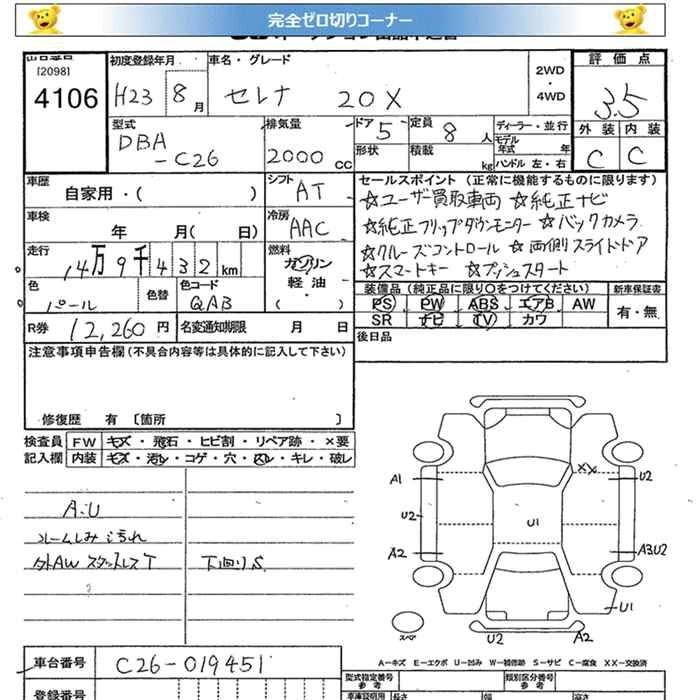 完全ゼロ切りコーナー
[2098]
4106
初度登録年月
H23 8月
車名・グレード
セレナ 20X
2WD
・
4WD
評価点
3.5
外装 内装
C C
型式
DBA
-C26
排気量
2000 CC
ドア 5
形状
定員 8人
積載 kg
ディーラー・並行
モデル年式 年
ハンドル 左・右
車歴
自家用・( )
シフト
AT
車検
年 月( 日)
冷房
AAC
走行
14万9千432km
燃料
ガソリン
軽油
・
( )
色
パール
色替
色コード
QAB
R券 12,260円
名変通知期限 月 日
セールスポイント (正常に機能するものに限ります)
☆ユーザー買取車両 ☆純正ナビ
☆純正フリップダウンモニター ☆バックカメラ
☆クルーズコントロール ☆両側スライドドア
☆スマートキー ☆プッシュスタート
装備品 (純正品に限り○をつけてください)
新車保証書
PS PW ABS エアB AW
SR ナビ TV カワ
有・無
後日品
注意事項申告欄(不具合内容等は具体的に記入して下さい)
修復歴 有 〔箇所 〕
検査員 FW キズ・飛石・ヒビ割・リペア跡・×要
記入欄 内装 キズ・汚レ・コゲ・穴・スレ・キレ・破レ
A.U
ルームしみ汚れ
外AWスタットレスT
下回りS
A1
U2
A2
U1
××
U2
A3U2
U1
スペア
U2
A2
A-キズ E-エクボ U-凹み W-補修跡 S-サビ C-腐食 XX-交換済
車台番号 C26-019451
登録番号
型式指定番号
参考
類別区分番号
参考
車庫証明用
長さ
幅
高さ